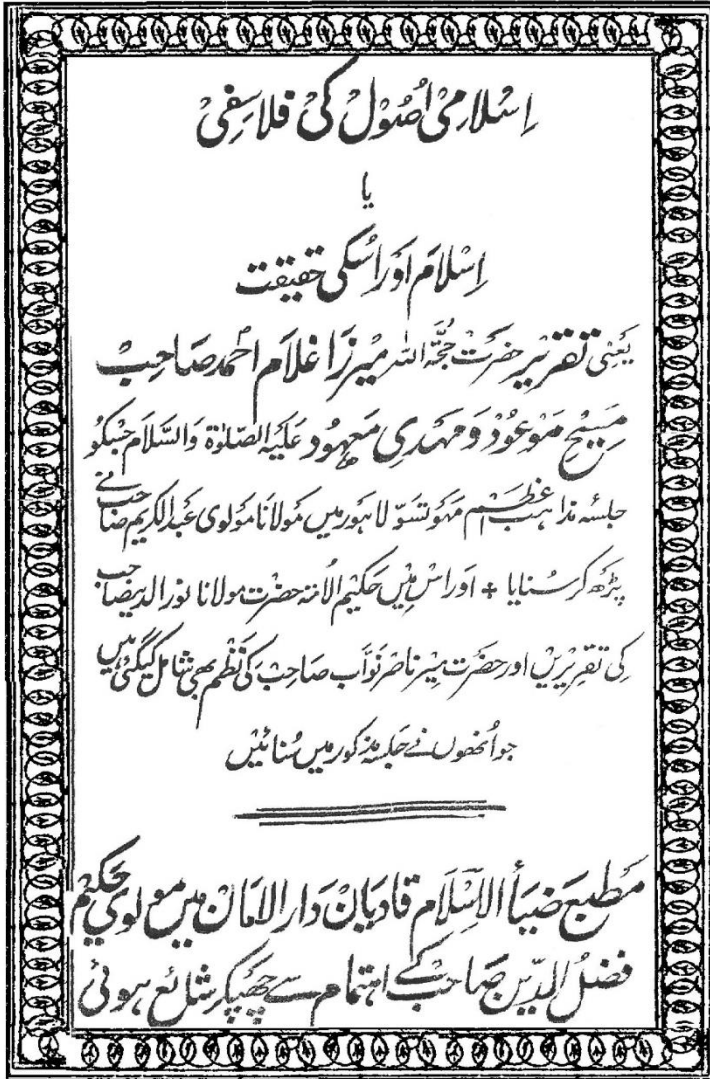 اِسْلامِی اُصُوْل کی فلاسفی
یا
اِسْلام اور اُسکی حقیقت
یَعنِی تقریر حضرت حُجَّۃ اللہ میرزا غلام احمد صاحب
مَسِیح مَوعُود وَ مہدی مَعہُود عَلَیہ الصَّلوٰۃ وَالسَّلام جسکو
جلسہ مذاہب اعظم مہوتسو لاہور میں مولانا مولوی عبد الکریم صاحب نے
پڑھ کر سنایا + اور اس میں حکیم الامۃ حضرت مولانا نور الدین صاحب
کی تقریریں اور حضرت میر ناصر نواب صاحب کی نظم بھی شامل کیگئی ہیں
جو اُنھوں نے جلسہ مذکور میں سُنائیں
مطبع ضیاء الاسلام قادیان دار الامان میں مولوی حکیم
فضل الدین صاحب کے اہتمام سے چھپکر شائع ہوئی